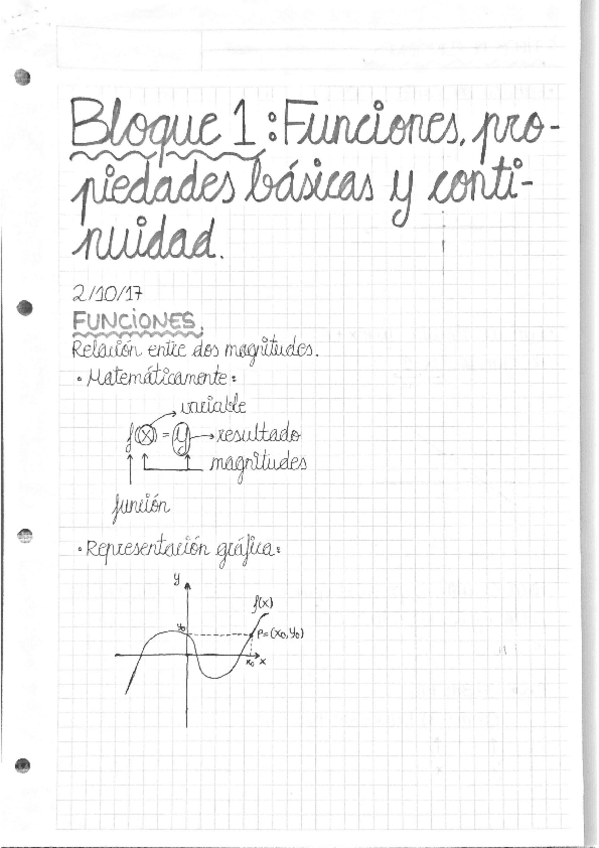 Bloque 1: Funciones, pro-
piedades básicas y conti-
nuidad.
2/10/17
FUNCIONES.
Relación entre dos magnitudes.
• Matemáticamente:
variable
f(x) = y → resultado
magnitudes
función
• Representación gráfica:
y
f(x)
y₀
P=(x₀,y₀)
x₀ x